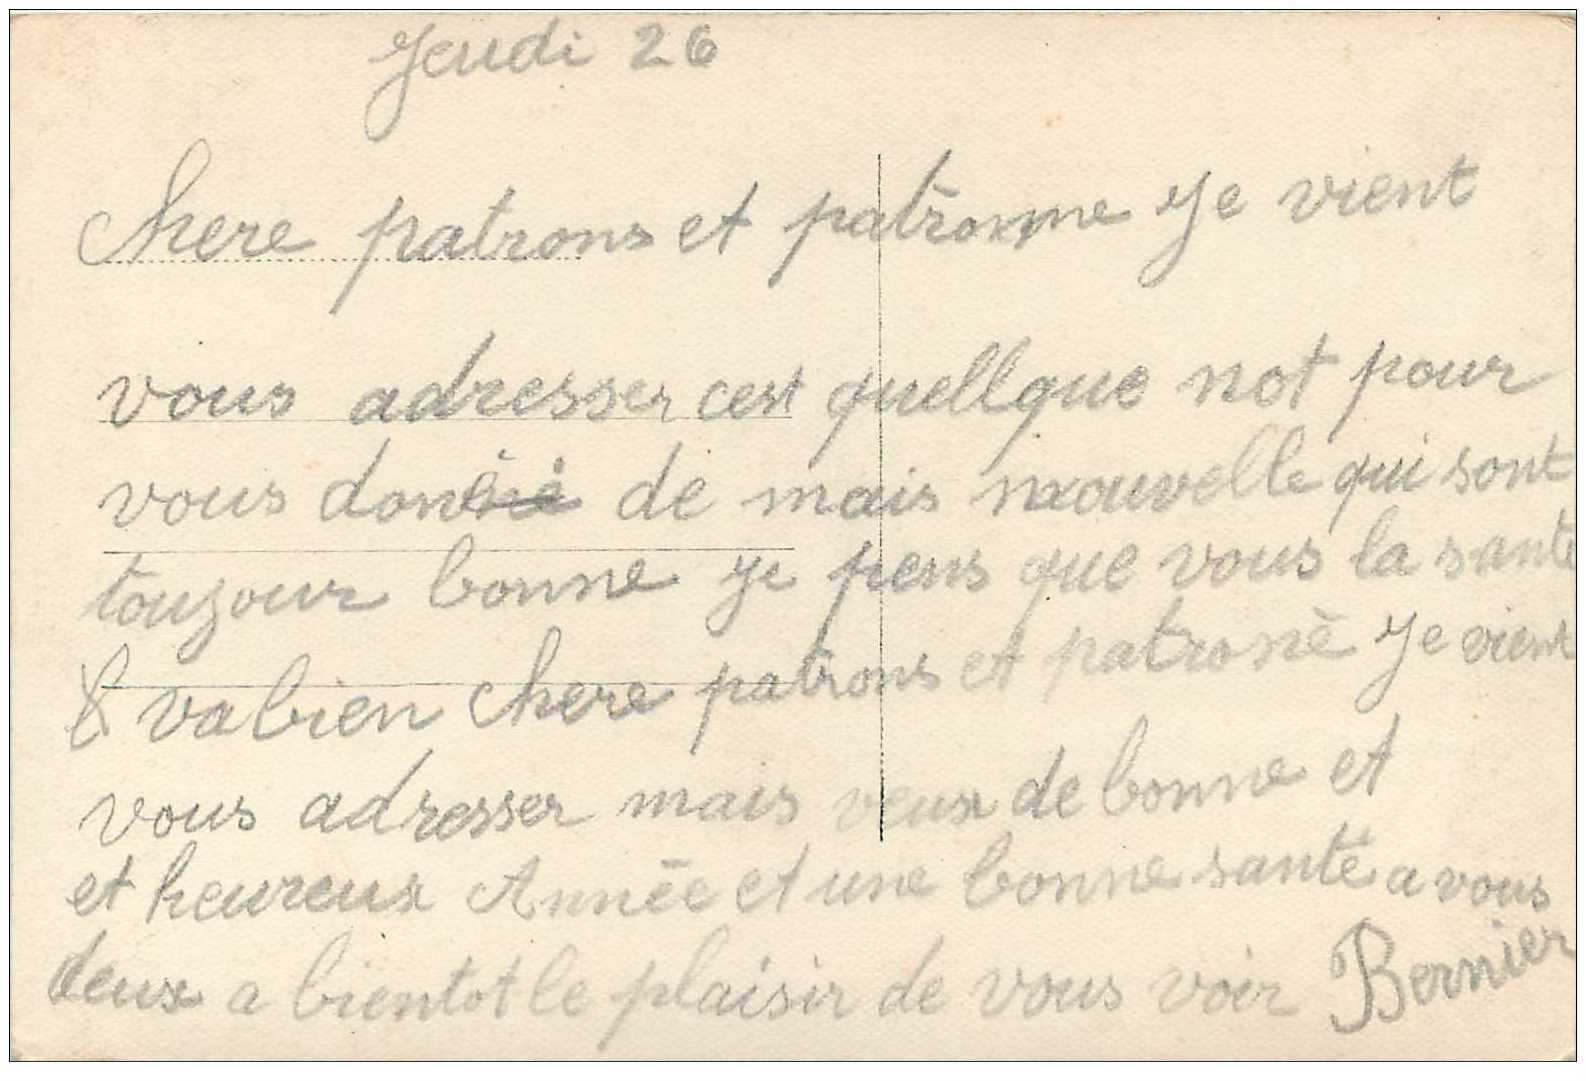 Jeudi 26
Chere patrons et patronne Je vient
vous adresser cest quellque not pour
vous doné de mais nouvelle qui sont
toujour bonne Je pens que vous la santé
va bien Chere patrons et patroné Je vient
vous adresser mais veux de bonne et
et heureux Année et une bonne santé a vous
deux a bientot le plaisir de vous voir Bernier